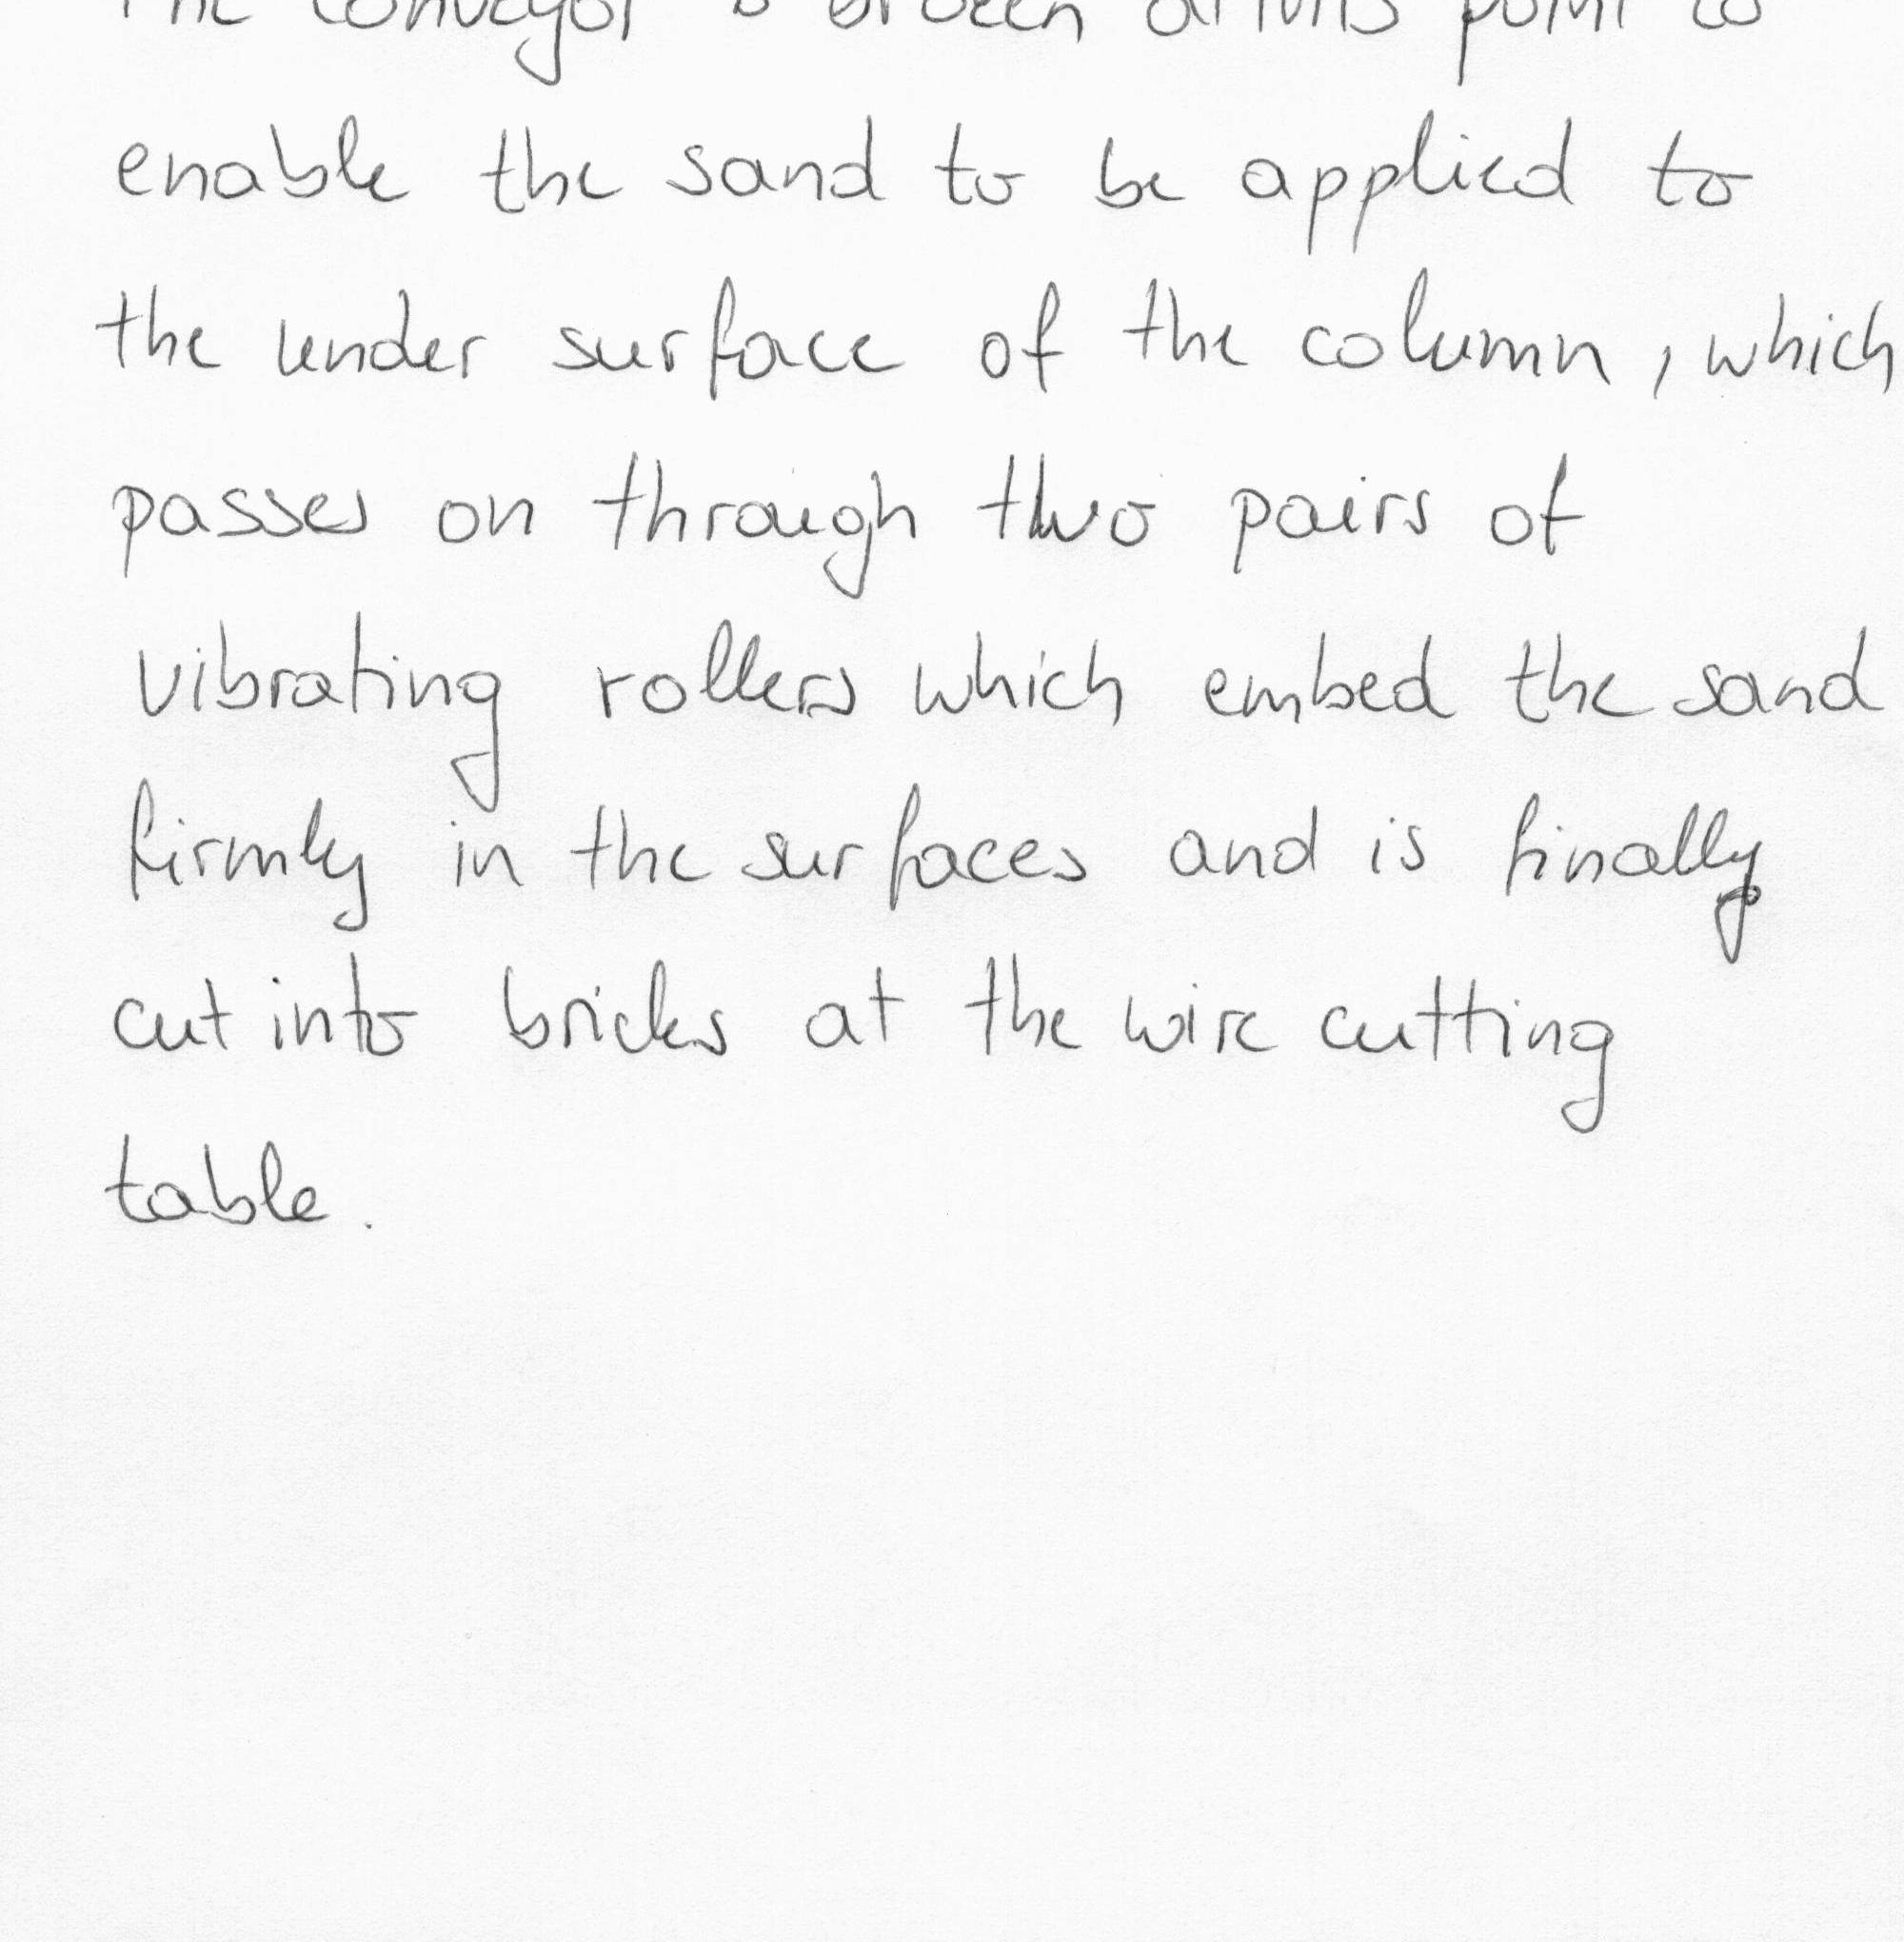 The conveyor is broken at this point to
enable the sand to be applied to
the under surface of the column, which
passes on through two pairs of
vibrating rollers which embed the sand
firmly in the surfaces and is finally
cut into bricks at the wire cutting
table.